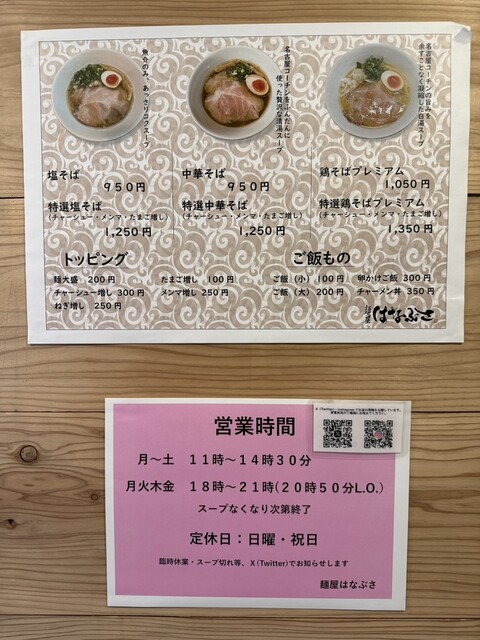 魚介のみ、あっさりコクスープ
名古屋コーチンをふんだんに
使った贅沢な清湯スープ
名古屋コーチンの旨みを
余すことなく凝縮した白湯スープ
塩そば
950円
特選塩そば
(チャーシュー・メンマ・たまご増し)
1,250円
中華そば
950円
特選中華そば
(チャーシュー・メンマ・たまご増し)
1,250円
鶏そばプレミアム
1,050円
特選鶏そばプレミアム
(チャーシュー・メンマ・たまご増し)
1,350円
トッピング
麺大盛 200円 たまご増し 100円
チャーシュー増し 300円 メンマ増し 250円
ねぎ増し 250円
ご飯もの
ご飯(小) 100円 卵かけご飯 300円
ご飯(大) 200円 チャーメン丼 350円
麺屋 はなぶさ
営業時間
月〜土 11時〜14時30分
月火木金 18時〜21時(20時50分L.O.)
スープなくなり次第終了
定休日:日曜・祝日
臨時休業・スープ切れ等、X(Twitter)でお知らせします
麺屋はなぶさ